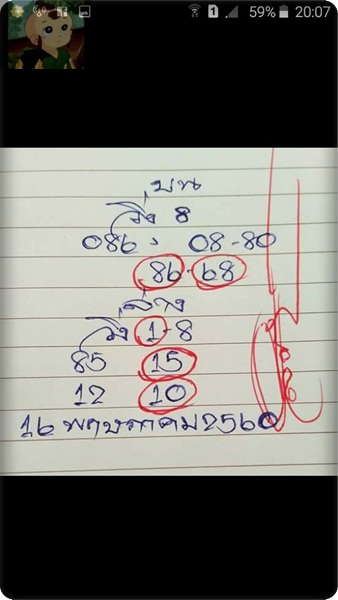 59% 20:07
บน
วิ่ง 8
086, 08-80
86-68
ล่าง
วิ่ง 1-8
85 15
12 10
16 พฤษภาคม 2560